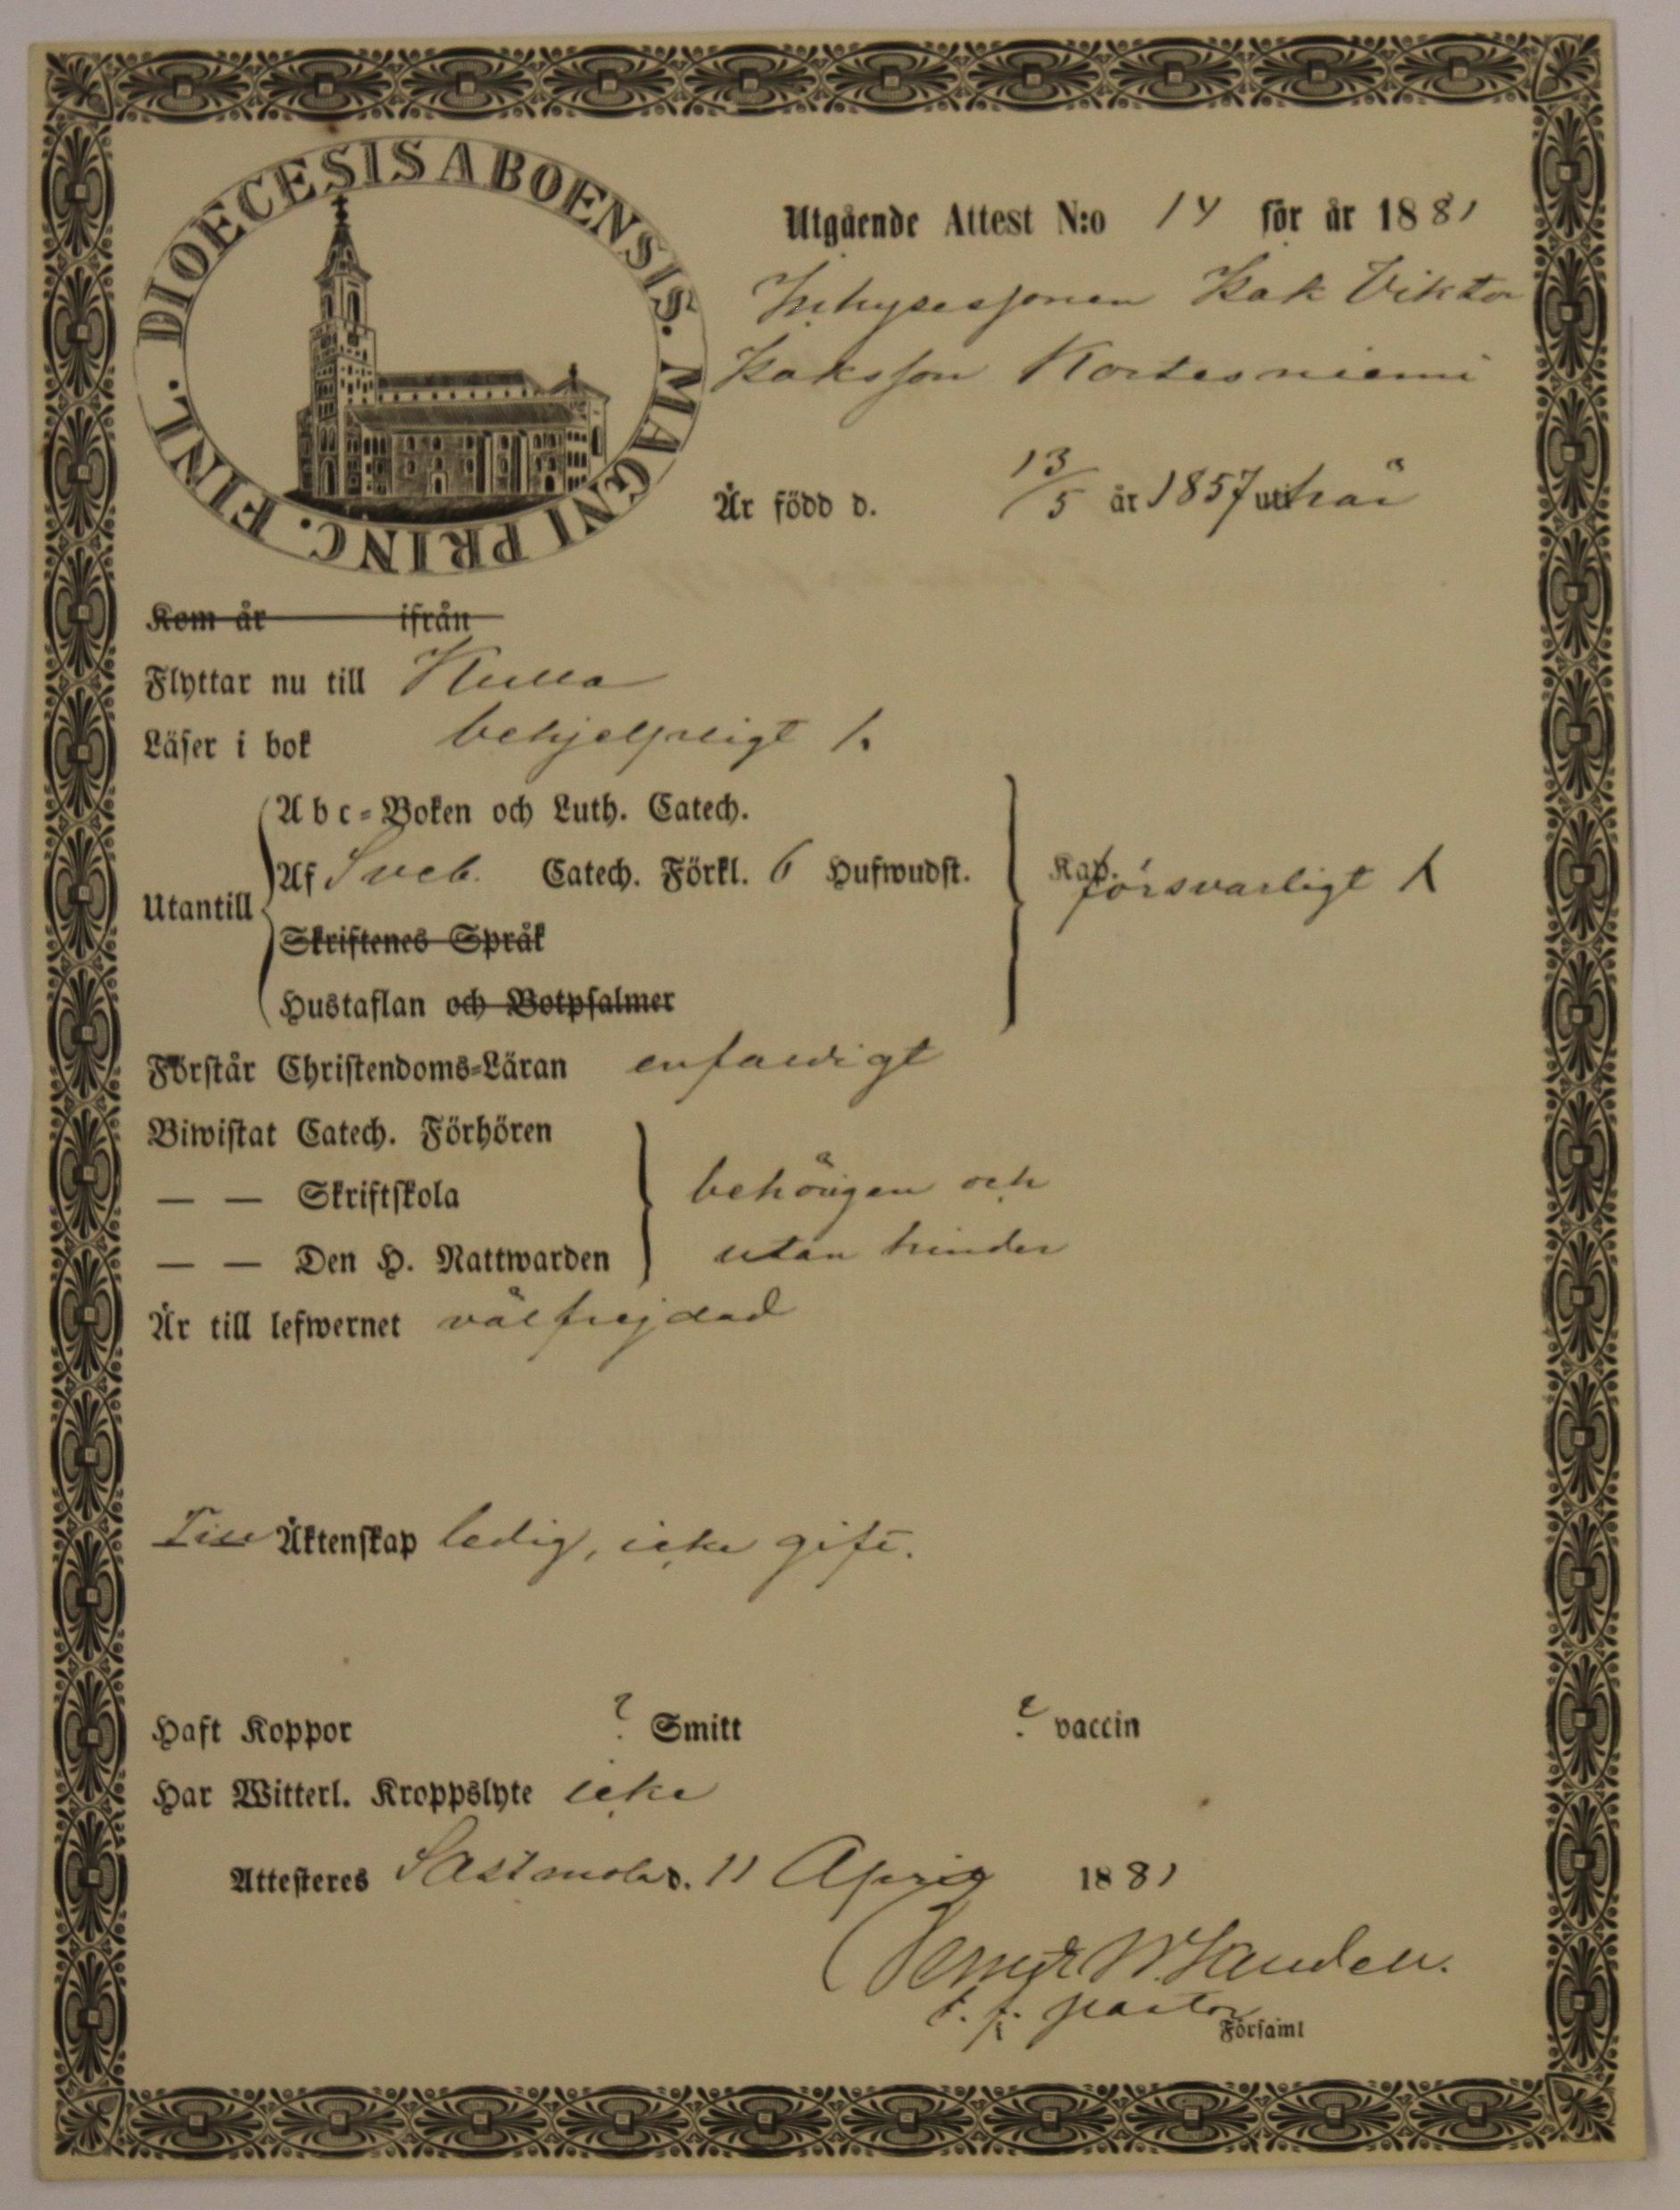 DIOECESIS ABOENSIS. MAGNI PRINC. FINL.
Utgående Attest N:o 14 för år 1881
Inhysessonen Isak Viktor
Isaksson Kortesniemi
Är född d. 13/5 år 1857 uti här
Kom år ifrån
Flyttar nu till Kulla
Läser i bok behjelpligt
Utantill
Abc-Boken och Luth. Catech.
Af Sveb. Catech. Förkl. 6 Hufwudst.
Kap. försvarligt
Skriftenes Språk
Hustaflan och Botpsalmer
Förstår Christendoms-Läran enfaldigt
Biwistat Catech. Förhören
— — Skriftskola behörigen och
— — Den H. Nattwarden utan hinder
Är till lefwernet välfrejdad
Till Äktenskap ledig, icke gift.
Haft Koppor ? Smitt ? vaccin
Har Witterl. Kroppslyte icke
Attesteres Sastmola d. 11 April 1881
t. f. pastor
i Församl